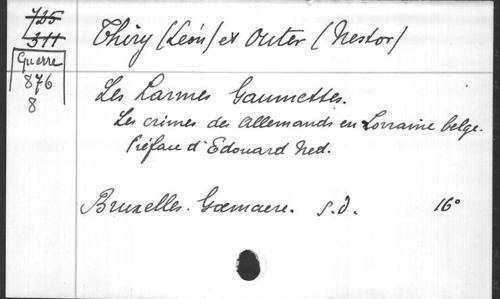 725
311
Guerre
876
8
Thiry (Léon) et Outer (Nestor)
Les Larmes Gaumettes.
Les crimes des Allemands en Lorraine belge.
Préface d'Edouard Ned.
Bruxelles. Goemaere. s.d. 16°